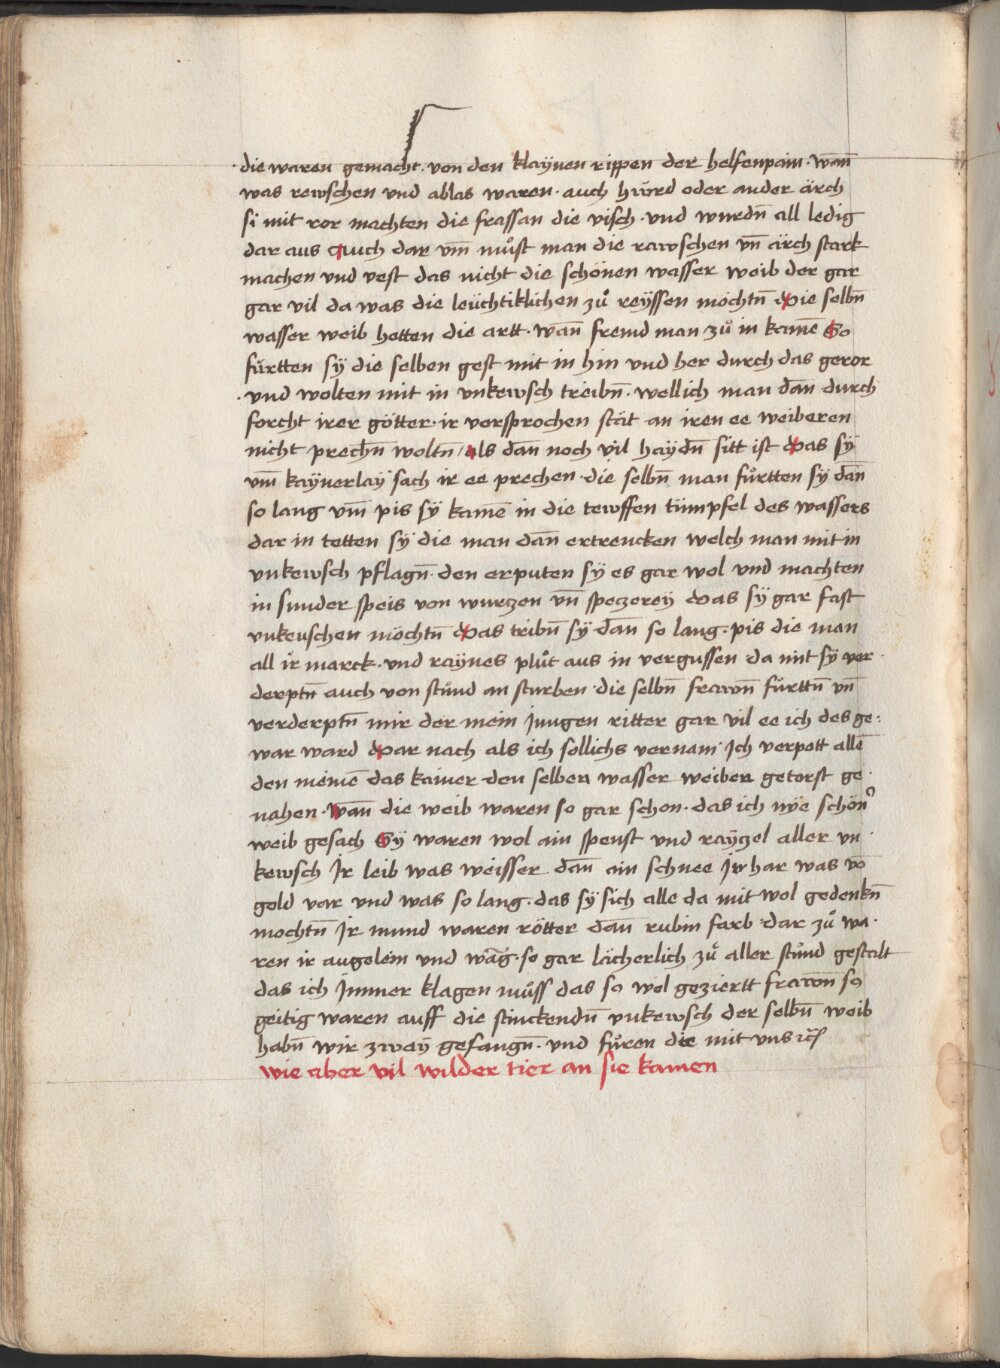 die waren gemacht · von den klaÿnen rippen der helfenpain · wan̄
was rewschen vnd ablas waren · auch hürd oder ander ärch
si mit ror machten die frassan die visch · vnd wurdn̄ all ledig
dar aus Auch dar vm̄ můst man die rawschen vn̄ ärch stark
machen vnd vest das nicht die schönen wasser weib der gar
gar vil da was die leüchtiklichen zů reÿssen möchtn̄ Die selbn̄
wasser weib hetten die artt · wan̄ fremd man zů in kamē So
fůrtten sÿ die selben gest mit in hin vnd her durch das geror
· vnd wolten mit in vnkewsch treibn̄ · wellich man dan̄ durch
forcht irer götter · ir versprochen stät an iren ee weiberen
nicht prechn̄ woltn̄ / Als dan̄ noch vil haÿdn̄ sitt ist Das sÿ
vm̄ kaÿnerlaÿ sach ir ee prechen · die selbn̄ man fůrtten sÿ dan̄
so lang vm̄ pis sÿ kamē in die tewffen tümpfel des wassers
dar in tetten sÿ die man dan̄ ertrencken welch man mit in
vnkewsch pflagn̄ · den erputen sÿ es gar wol vnd machten
in sunder speis von wurtzen vn̄ speczereÿ Das sÿ gar fast
vnkeuschen möchtn̄ Das tribn̄ sÿ dan̄ so lang · pis die man
all ir marck · vnd raÿnes plůt aus in vergussen · da mit sÿ ver ·
derptn̄ auch von stůnd an sturben · die selbn̄ frawn̄ fůrttn̄ vn̄
verderptn̄ mir der mein jungen ritter gar vil ee ich des ge :
war ward Dar nach als ich sollichs vernam · Ich verpott allē
den meinē das kainer den selben wasser weiben getorst ge ·
nahen · Wan̄ die weib waren so gar schon · das ich nÿe schön̉
weib gesach Sÿ waren wol ain spenst vnd raÿzel aller vn ·
kewsch Ir leib was weisser dan̄ ain schnee Ir har was vō
gold var vnd was so lang · das sÿ sich alle da mit wol gedenkn̄
mochtn̄ Ir mund waren rötter dan̄ rubin farb · dar zů wa ·
ren ir augelein vnd wāg · so gar lächerlich zů aller stůnd gestalt
das ich Immer klagen můss das so wol geziertt frawn̄ so
geitig waren auff die stinckendn̄ vnkewsch der selbn̄ weib
habn̄ wir zwaÿ gefangn̄ · vnd fůren die mit vns
wie aber vil wilder tier an sie kamen